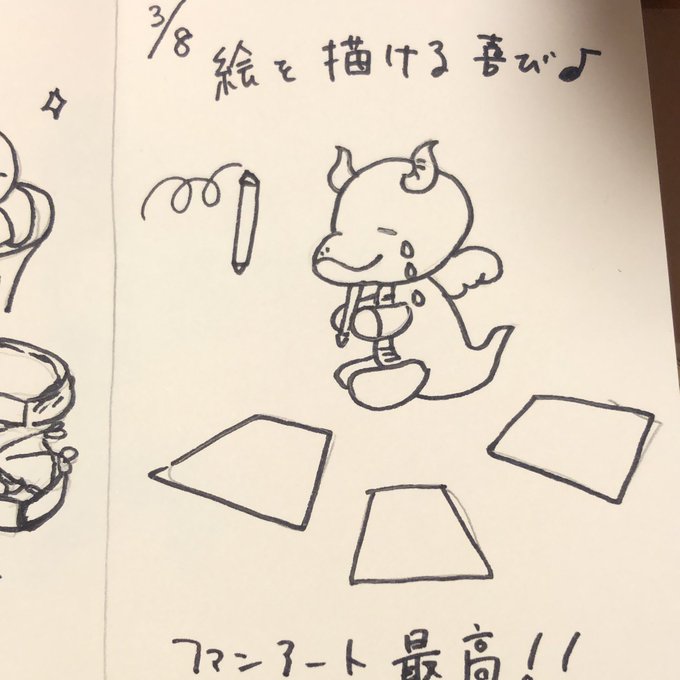 3/8
絵を描ける喜び♪
ファンアート最高!!